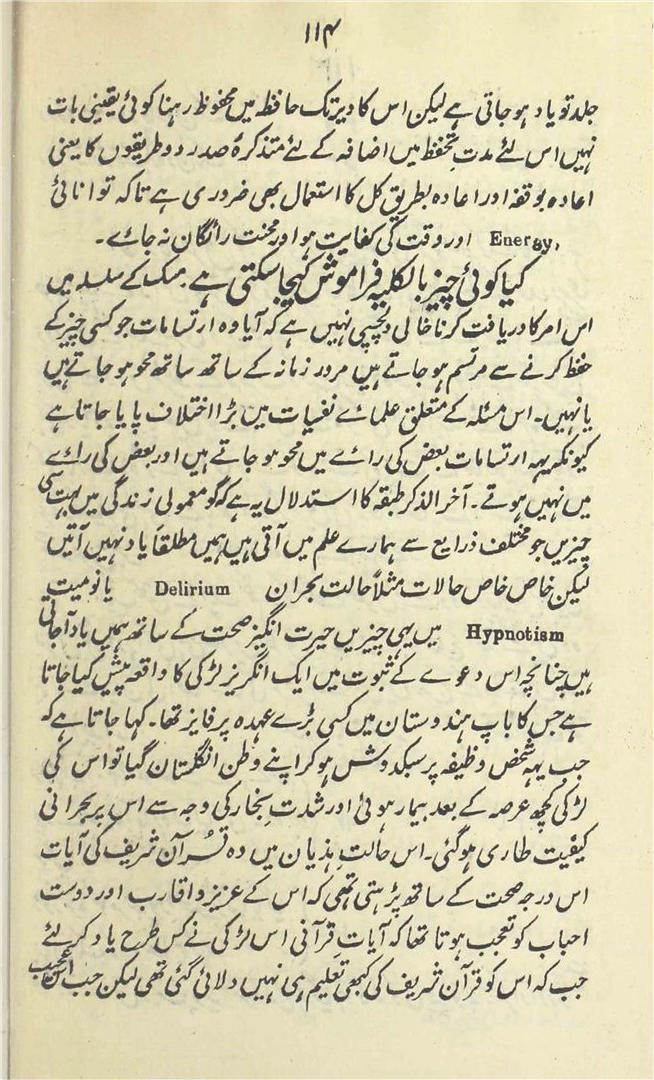 ۱۱۴
جلد تو یاد ہو جاتی ہے لیکن اس کا دیر تک حافظہ میں محفوظ رہنا کوئی یقینی بات
نہیں اس لئے مدتِ تحفظ میں اضافہ کے لئے متذکرۂ صدر دو طریقوں کا یعنی
اعادہ بوقفہ اور اعادہ بطریق کل کا استعمال بھی ضروری ہے تاکہ توانائی
Energy, اور وقت کی کفایت ہو اور محنت رائگان نہ جائے۔
کیا کوئی چیز بالکلیہ فراموش کیجا سکتی ہے۔ مسک کے سلسلہ میں
اس امر کا دریافت کرنا خالی دلچسپی نہیں ہے کہ آیا وہ ارتسامات جو کسی چیز کے
حفظ کرنے سے مرتسم ہو جاتے ہیں مرور زمانہ کے ساتھ ساتھ محو ہو جاتے ہیں
یا نہیں۔ اس مسئلہ کے متعلق علمائے نفسیات میں بڑا اختلاف پایا جاتا ہے
کیونکہ یہہ ارتسامات بعض کی رائے میں محو ہو جاتے ہیں اور بعض کی رائے
میں نہیں ہوتے۔ آخر الذکر طبقہ کا استدلال یہ ہے کہ گو معمولی زندگی میں بہت سی
چیزیں جو مختلف ذرایع سے ہمارے علم میں آتی ہیں ہمیں مطلقاً یاد نہیں آتیں
لیکن خاص خاص حالات مثلاً حالت بحران Delirium یا نومیت
Hypnotism میں یہی چیزیں حیرت انگیز صحت کے ساتھ ہمیں یاد آجاتی
ہیں چنانچہ اس دعوے کے ثبوت میں ایک انگریز لڑکی کا واقعہ پیش کیا جاتا
ہے جس کا باپ ہندوستان میں کسی بڑے عہدہ پر فایز تھا۔ کہا جاتا ہے کہ
جب یہہ شخص وظیفہ پر سبکدوش ہو کر اپنے وطن انگلستان گیا تو اس کی
لڑکی کچھ عرصہ کے بعد بیمار ہوئی اور شدتِ بخار کی وجہ سے اس پر بحرانی
کیفیت طاری ہو گئی۔ اس حالتِ ہذیان میں وہ قرآن شریف کی آیات
اس درجہ صحت کے ساتھ پڑہتی تھی کہ اس کے عزیز و اقارب اور دوست
احباب کو تعجب ہوتا تھا کہ آیات قرآنی اس لڑکی نے کس طرح یاد کر لئے
جب کہ اس کو قرآن شریف کی کبھی تعلیم ہی نہیں دلائی گئی تھی لیکن جب اس